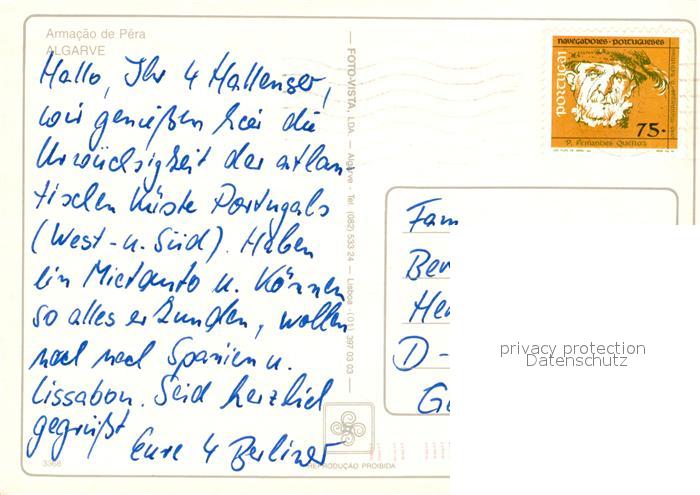 Armação de Pêra
ALGARVE
Hallo, Ihr 4 Hallenser,
wir genießen hier die
Urwüchsigkeit der atlan-
tischen Küste Portugals
(West- u. Süd). Haben
ein Mietauto u. können
so alles erkunden, wollen
noch nach Spanien u.
Lissabon. Seid herzlich
gegrüßt
Eure 4 Berliner
3368
FOTO-VISTA, LDA — Algarve - Tel. (082) 533 24 — Lisboa - (01) 397 03 03
REPRODUÇÃO PROIBIDA
NAVEGADORES-PORTUGUESES
PORTUGAL
75.
P. Fernandes Queiroz
Fam
Ber
D-
privacy protection
Datenschutz